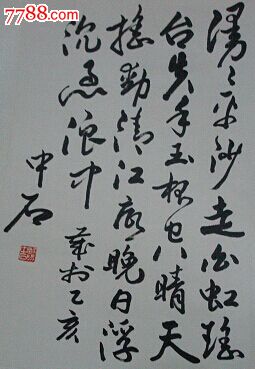 7788.com
漫々平沙走白虹瑶
台失手玉杯空晴天
摇動清江底晚日浮
沉急浪中
乙亥
中石